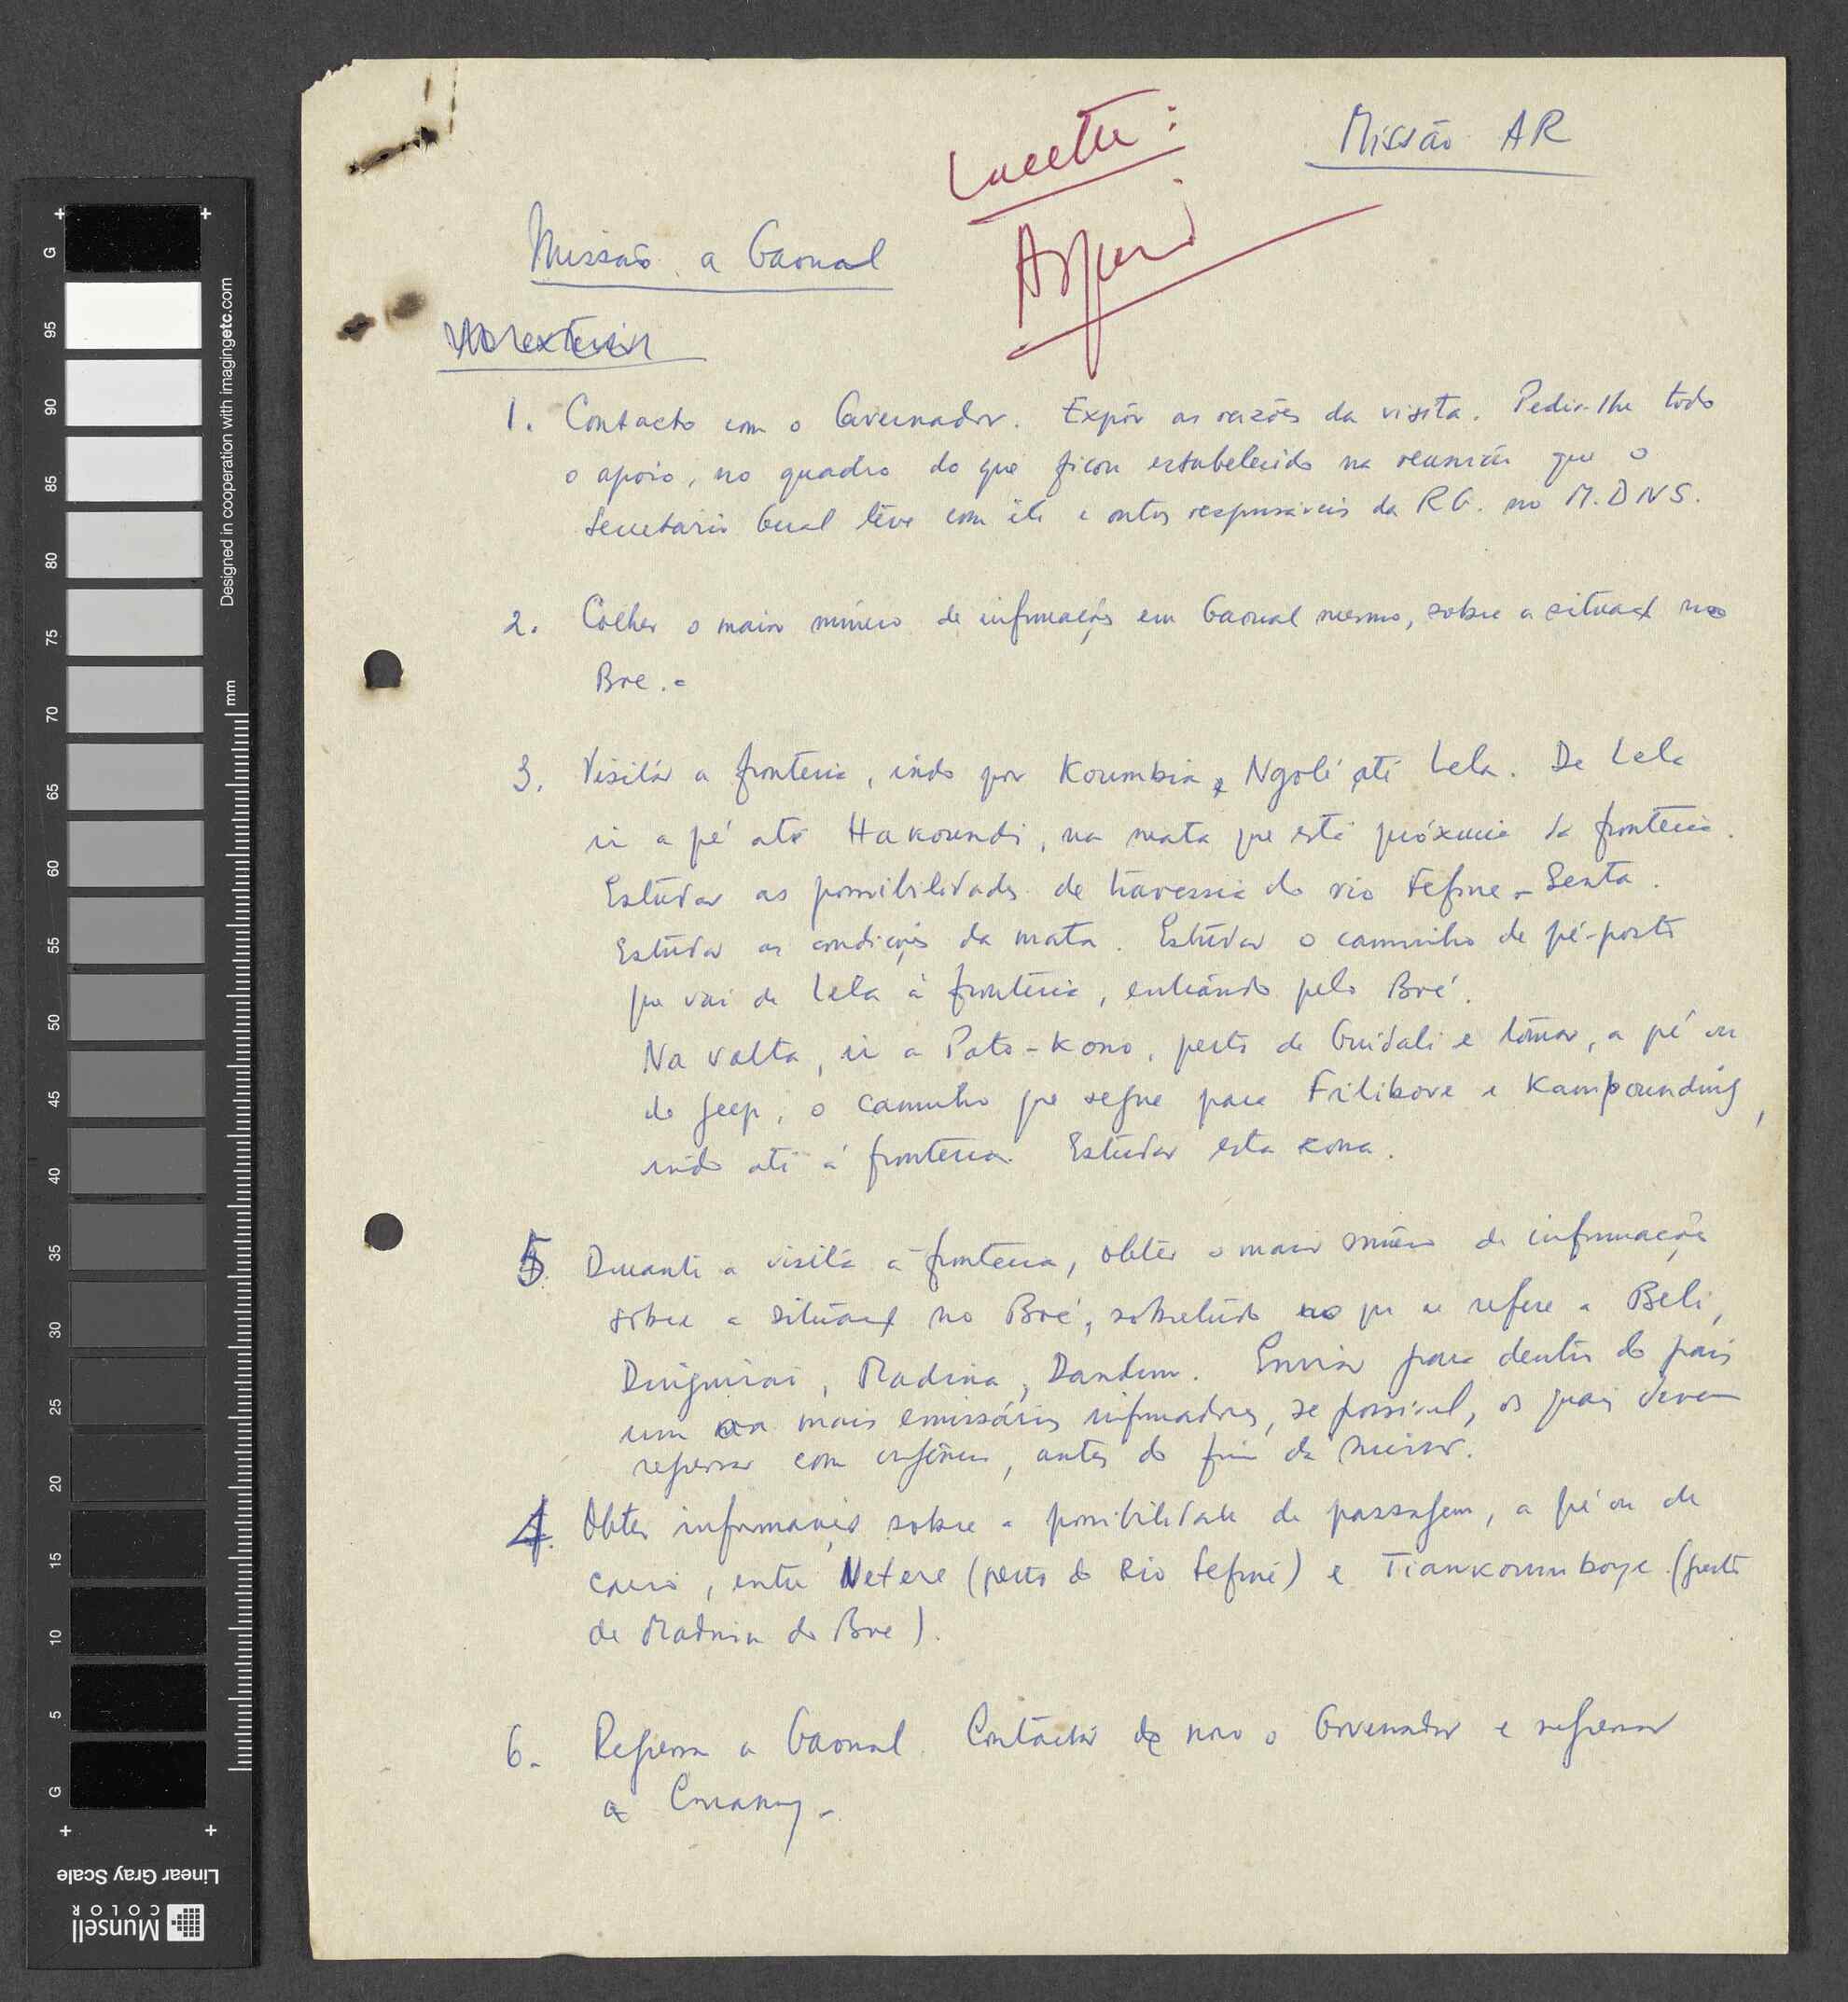 Missão AR
Lucette:
Missão a Gaoual
No exterior
1. Contacto com o Governador. Expôr as razões da visita. Pedir-lhe todo
o apoio, no quadro do que ficou estabelecido na reunião que o
Secretário Geral teve com êle e outros responsáveis da RG. no M.DNS.
2. Colher o maior número de informações em Gaoual mesmo, sobre a situaç no
Boe.
3. Visitár a fronteira, indo por Koumbia, Ngolé até Lela. De Lela
ir a pé até Hakoundi, na mata que está próxima da fronteira.
Estudar as possibilidades de travessia do rio Fefine - Senta.
Estudar as condições da mata. Estudar o caminho de pé-posto
que vai de Lela à fronteira, entrando pelo Boé.
Na volta, ir a Pato-Kono, perto de Guidali e tomar, a pé ou
de jeep, o caminho que segue para Frilibove e Kampounding,
indo até á fronteira. Estudar esta zona.
5. Durante a visita à fronteira, obter o maior número de informações
sobre a situaç no Boé, sobretudo no que se refere a Beli,
Dinguirai, Madina, Dandum. Enviar para dentro do país
um ou mais emissários informadores, se possível, os quais devem
regressar com urgência, antes do fim da missão.
4. Obter informações sobre a possibilidade de passagem, a pé ou de
carro, entre Netere (perto do Rio Fefiné) e Tiankoumboye (perto
de Madina do Boe).
6. Regressar a Gaoual. Contactár de novo o Governador e regressar
a Conakry.
Designed in cooperation with imagingetc.com
mm
G 95 90 85 80 75 70 65 60 55 50 45 40 35 30 25 20 15 10 5 G
Linear Gray Scale
Munsell
COLOR